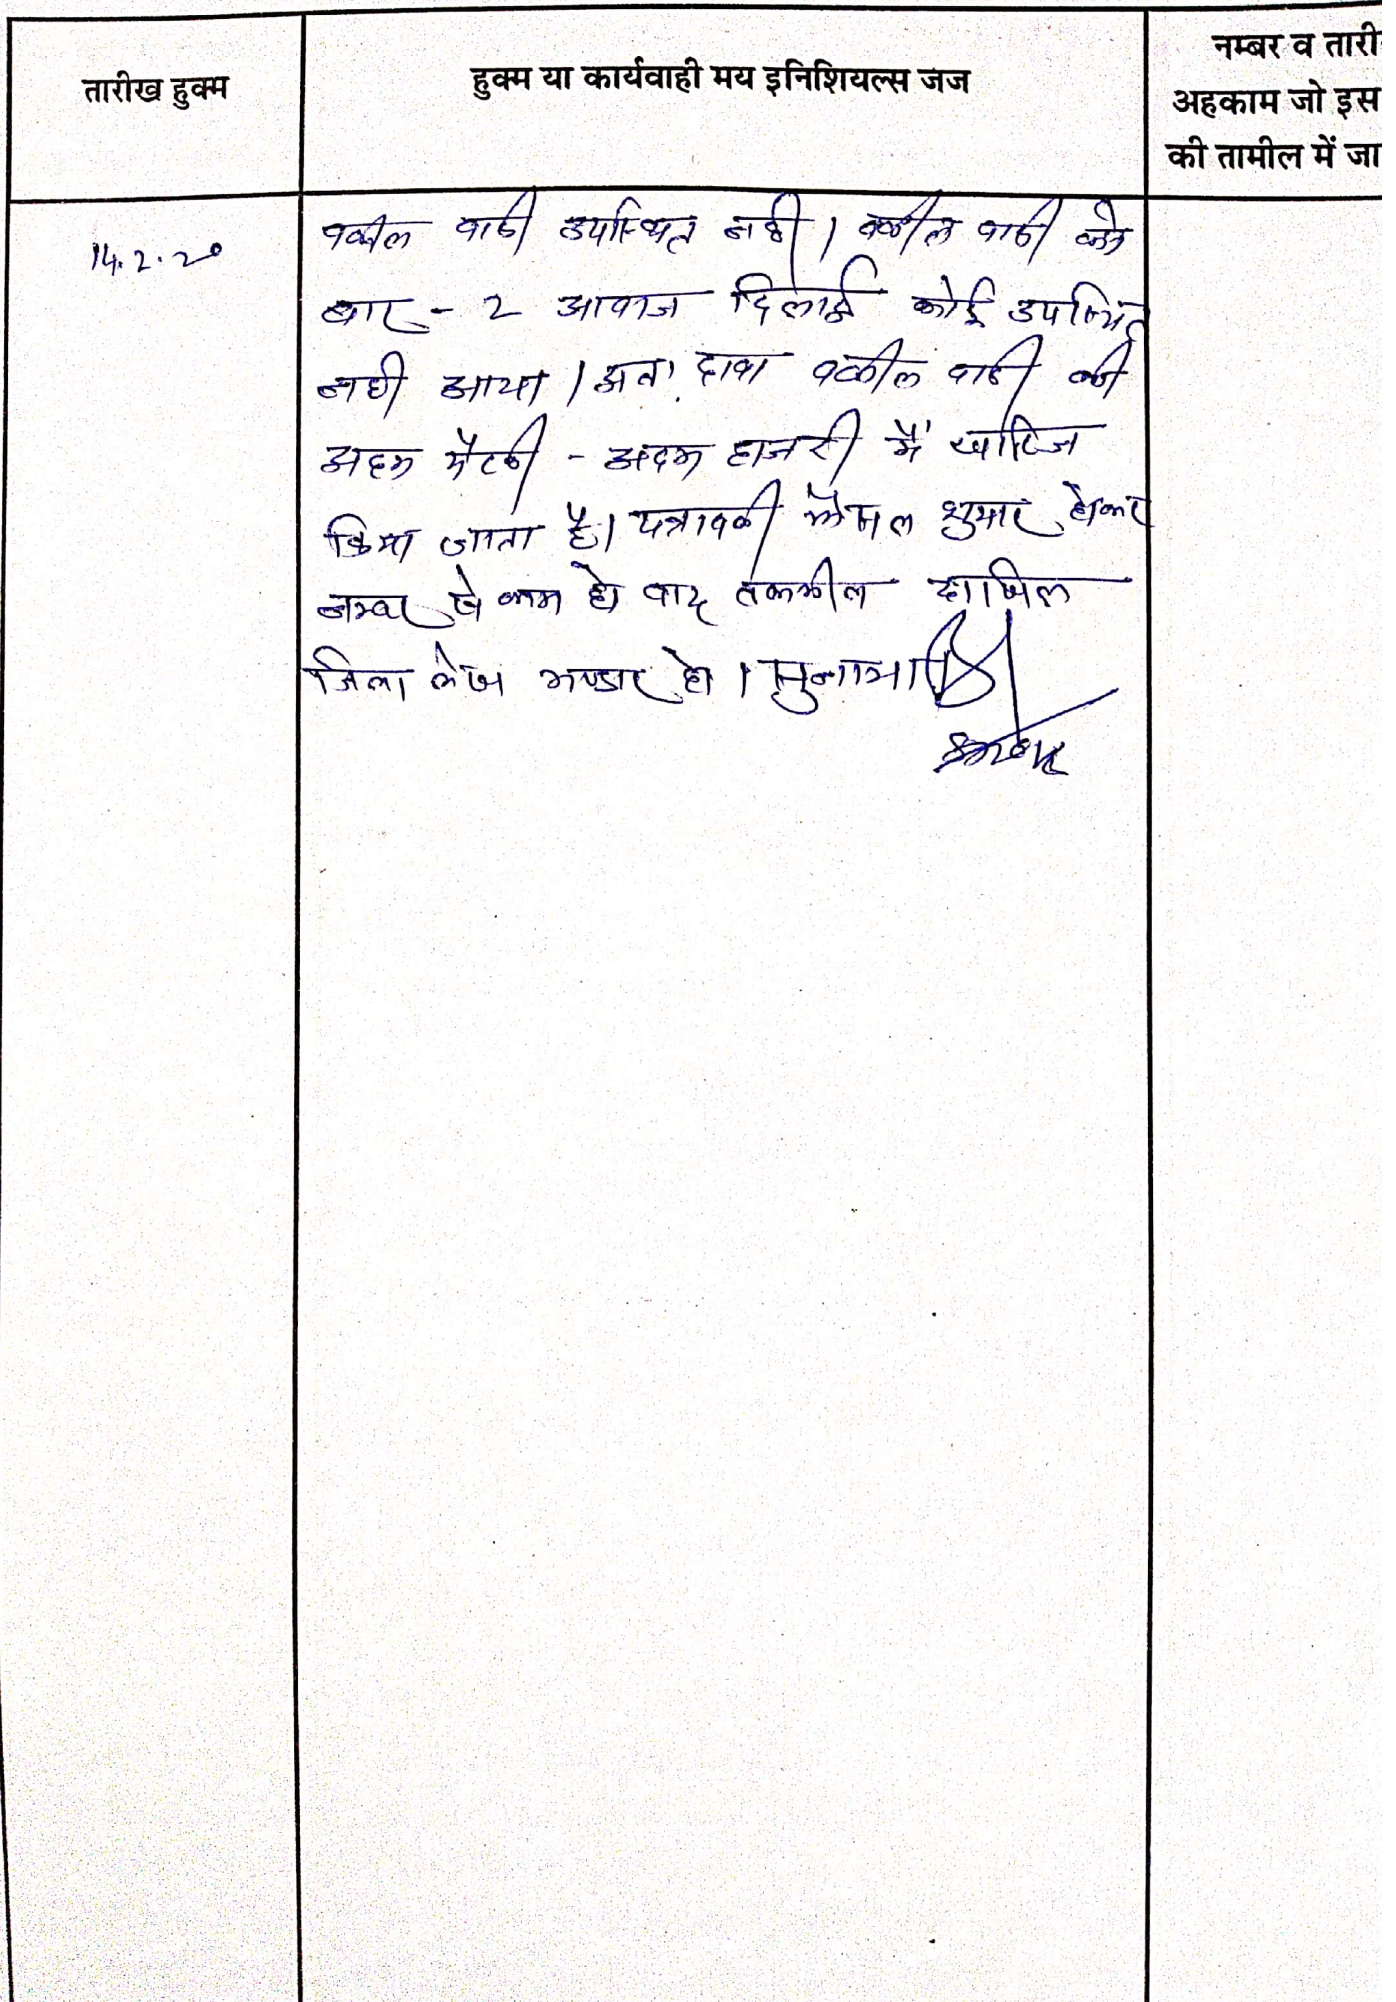 तारीख हुक्म
हुक्म या कार्यवाही मय इनिशियल्स जज
नम्बर व तारी
अहकाम जो इस
की तामील में जा
14.2.20
वकील वादी उपस्थित नही। वकील वादी को
बार - 2 आवाज दिलाई कोई उपस्थित
नही आया। अतः दावा वकील वादी की
अदम पैरवी - अदम हाजरी में खारिज
किया जाता है। पत्रावली फैसल शुमार होकर
नम्बर से कम हो बाद तकमील दाखिल
जिला लेख भण्डार हो। सुनाया